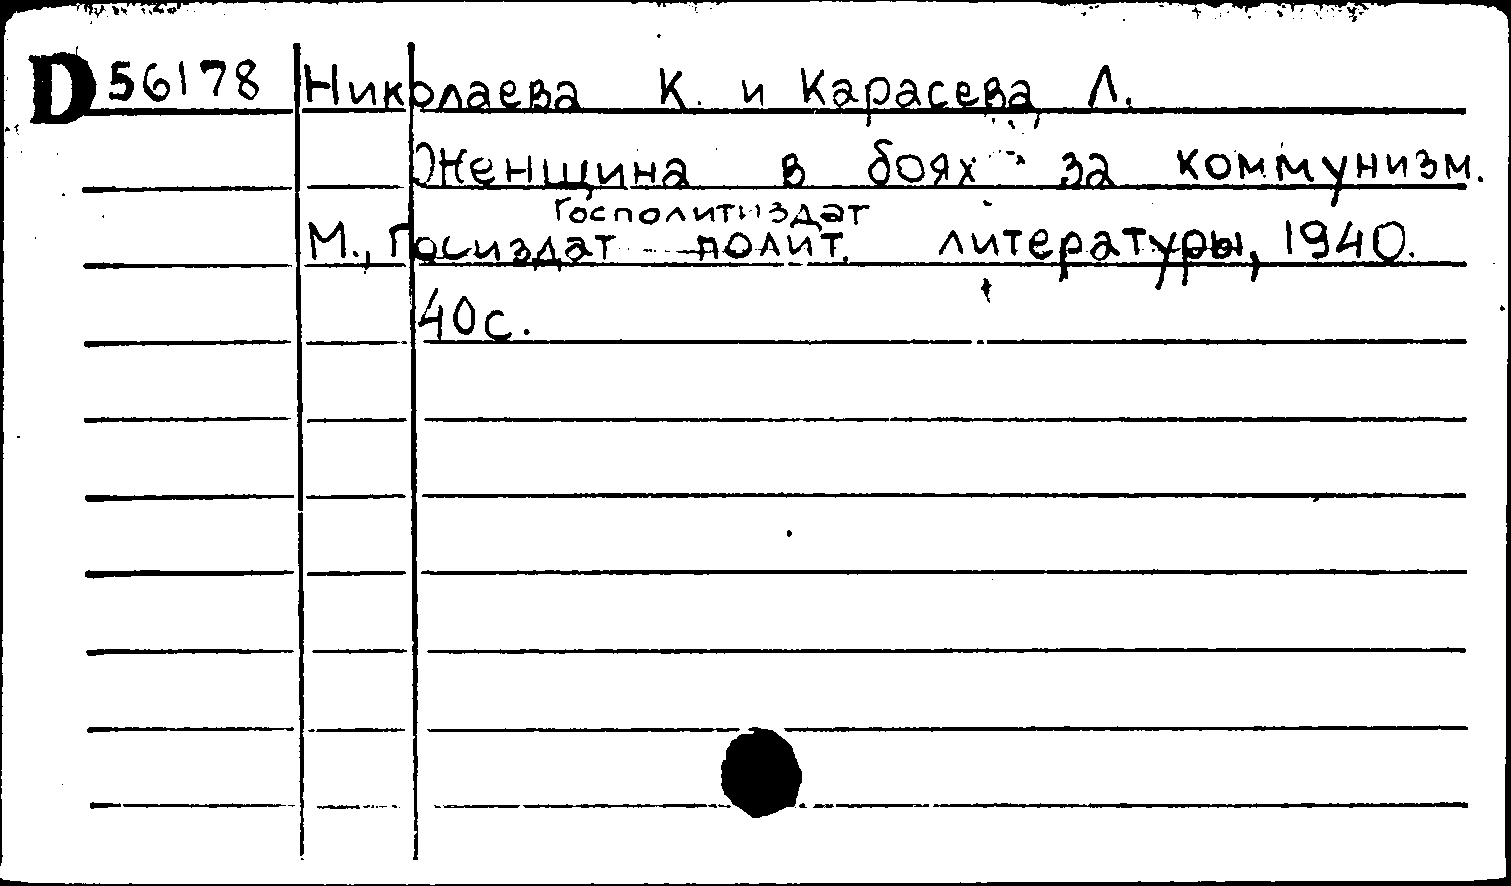 D 56178 Николаева К. и Карасева Л.
Женщина в боях за коммунизм.
Госполитиздат
М., Госиздат полит. литературы, 1940.
40с.